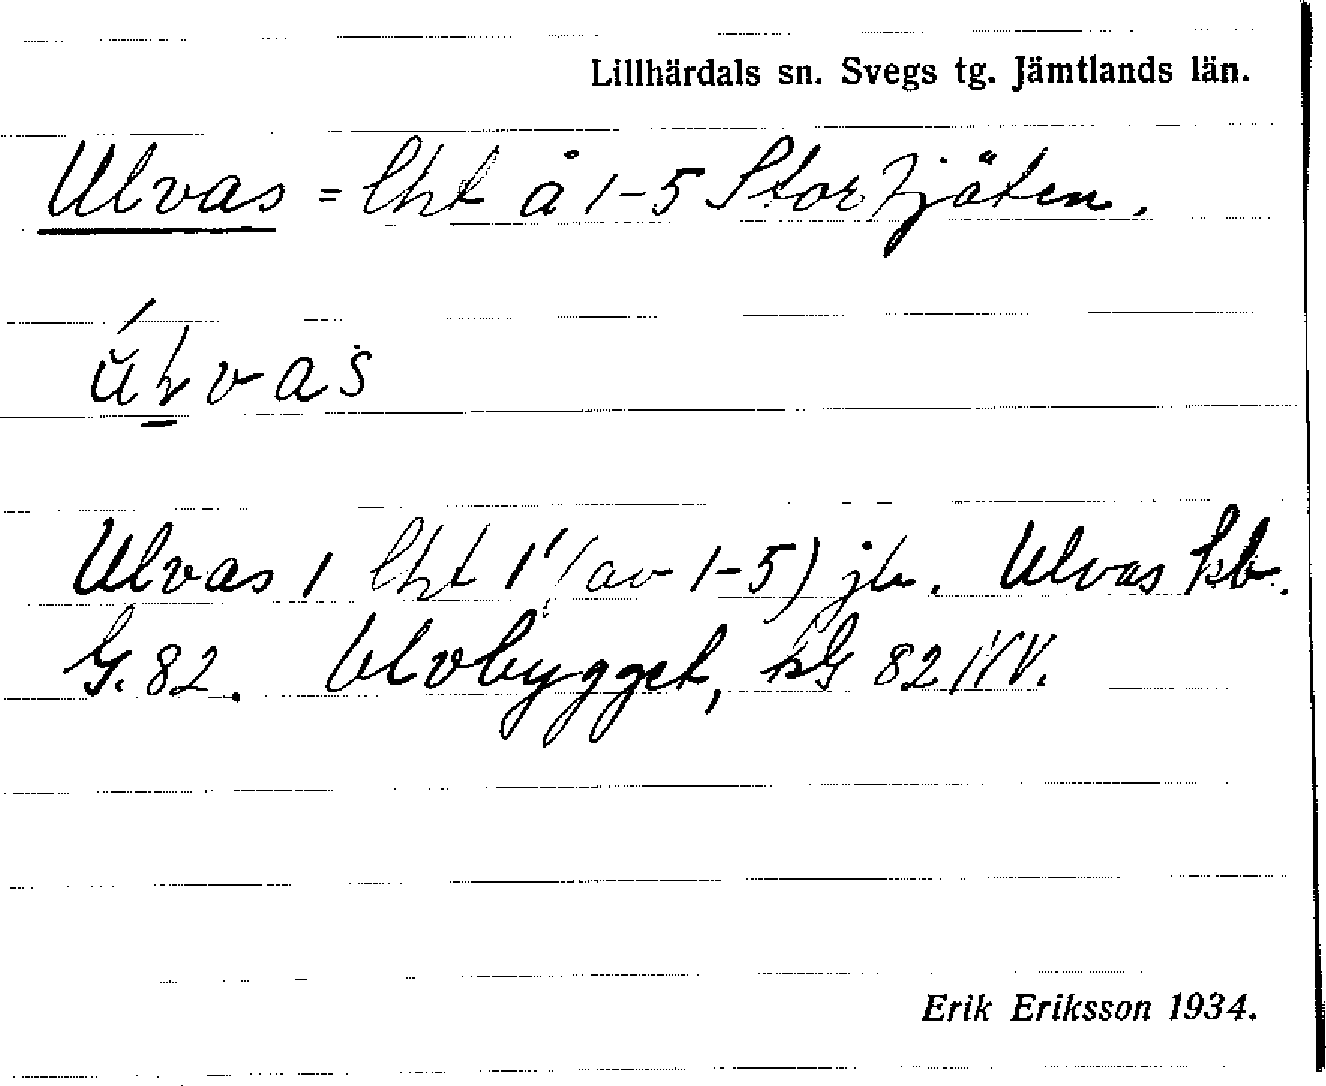 Lillhärdals sn. Svegs tg. Jämtlands län.
Ulvas = lht å 1-5 Stor Tjäten.
Ulvas 1 lht 1¹ (av 1-5) jb. Ulvas kb.
G. 82. Ulvbygget, kG 82 NV.
Erik Eriksson 1934.